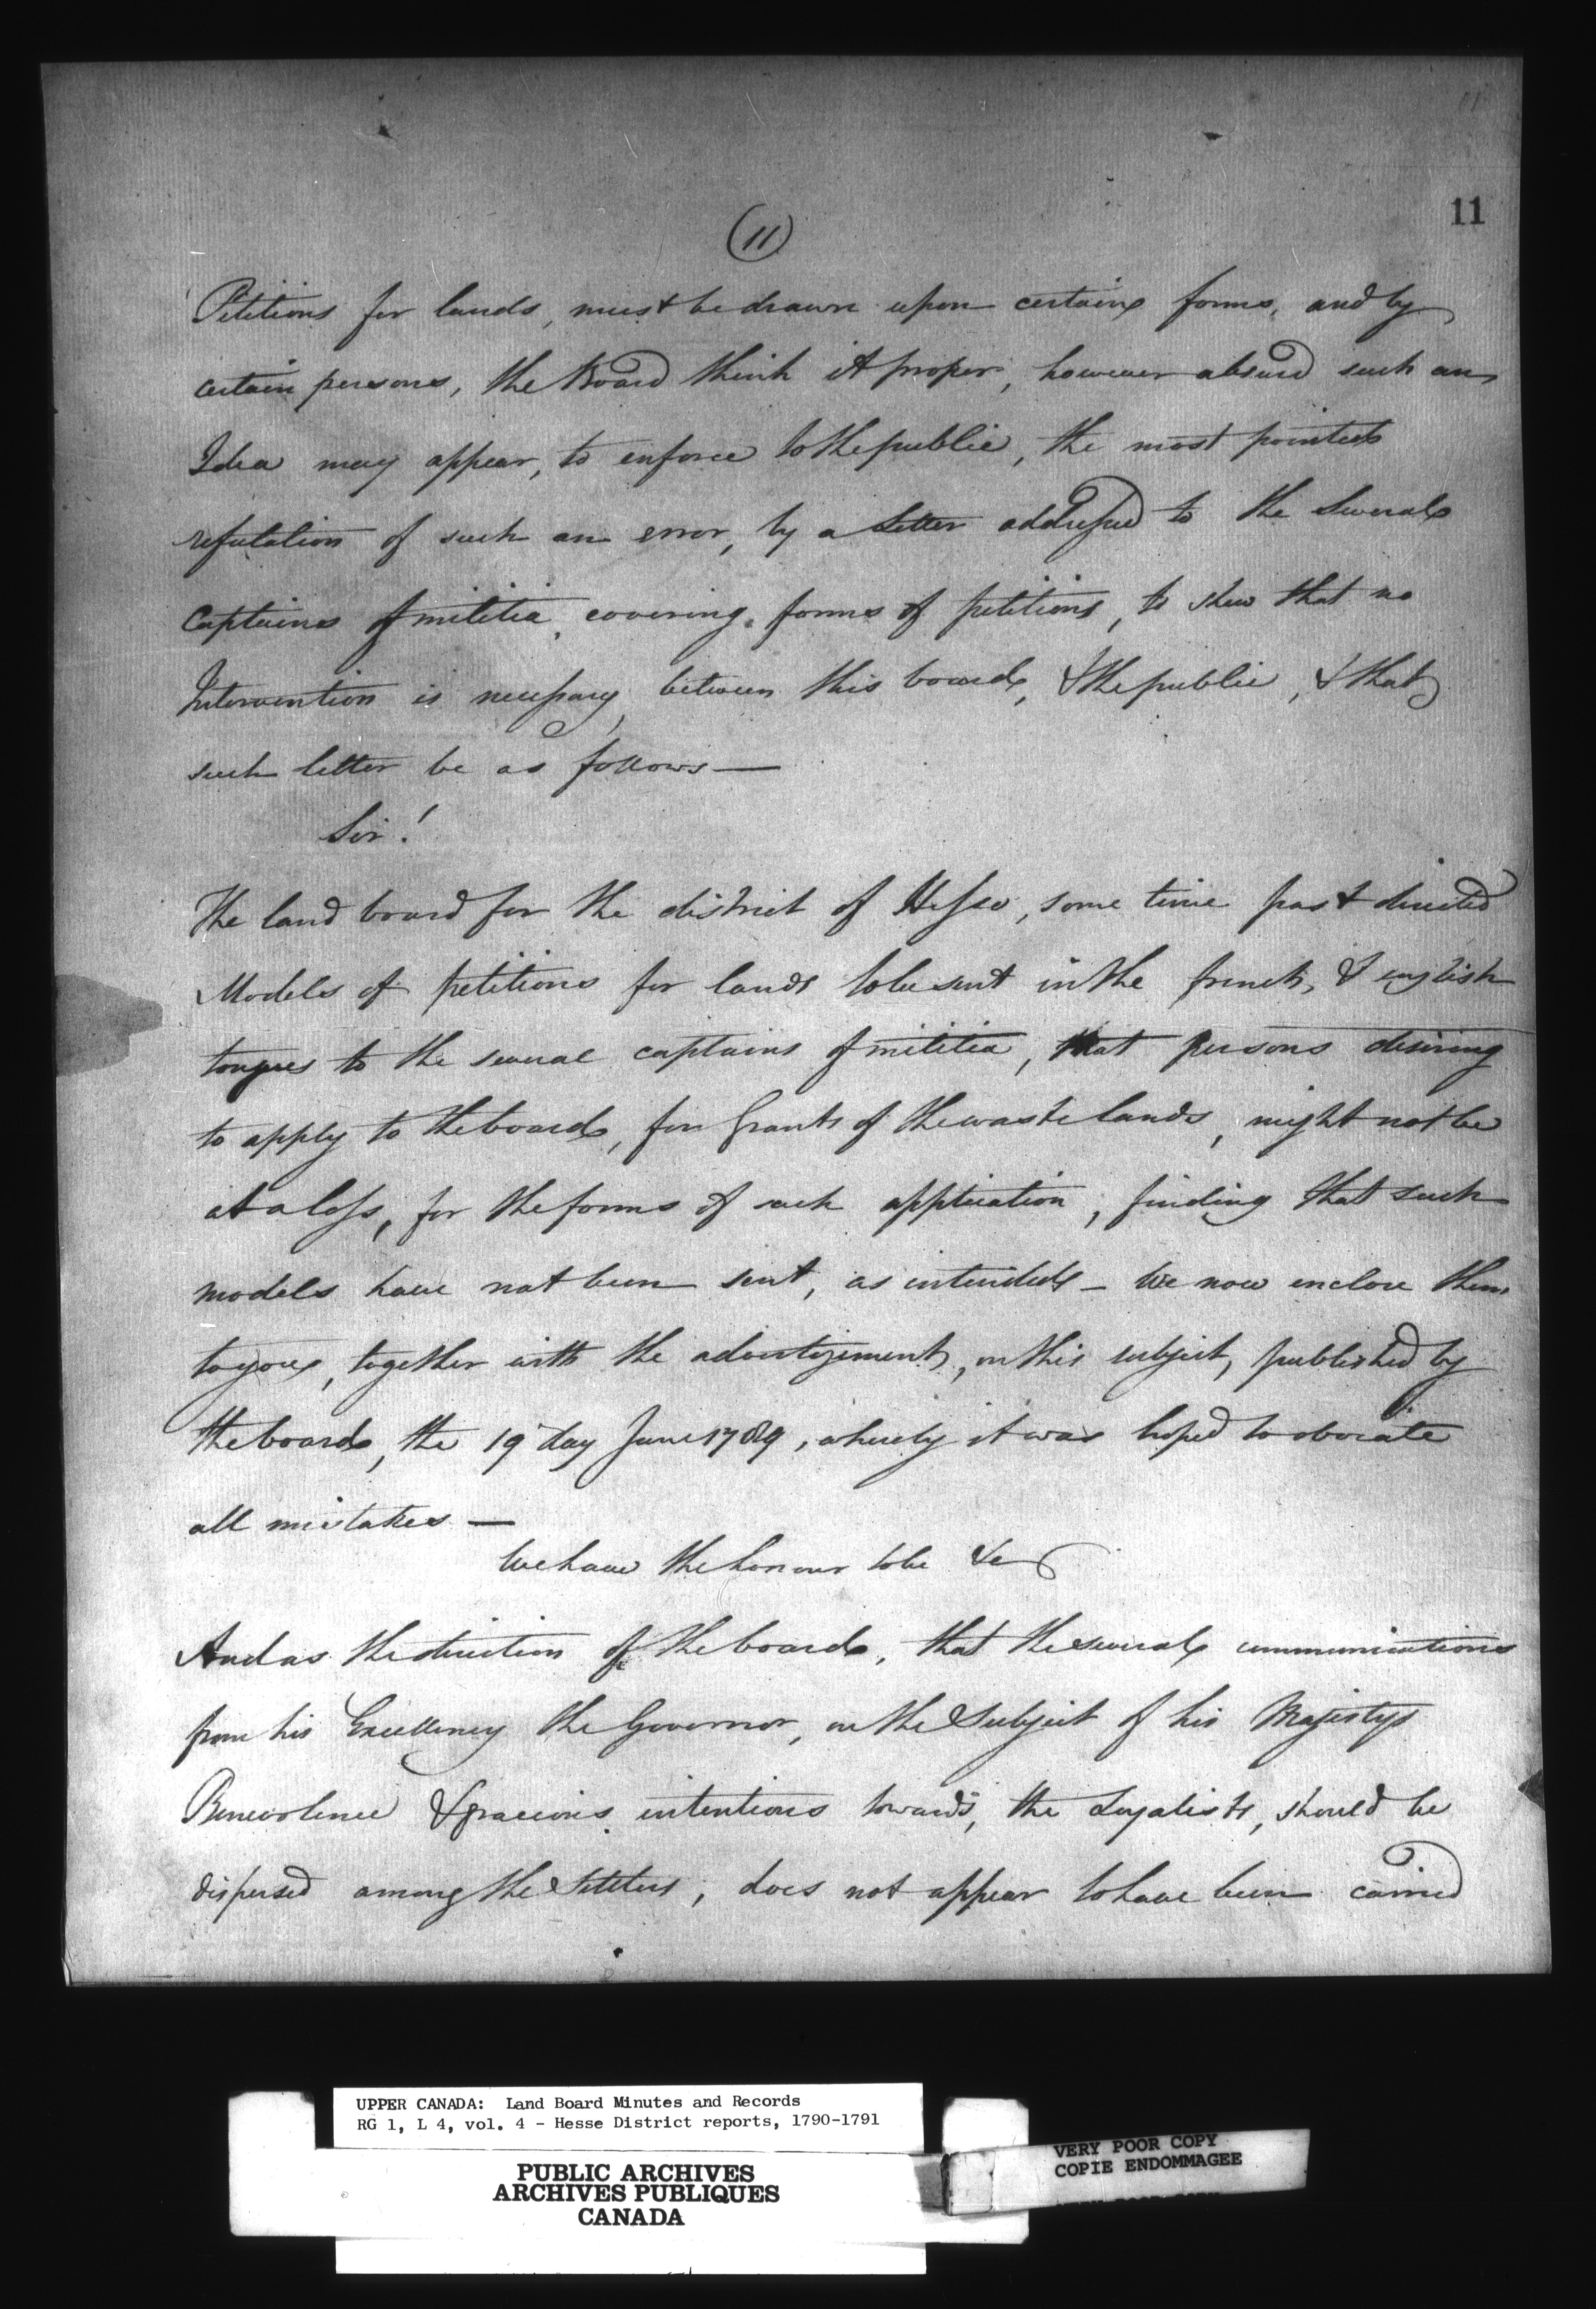 11
(11)
Petitions for lands, must be drawn upon certain forms, and by
certain persons, the Board think it proper, however absurd such an
Idea may appear, to enforce to the public, the most pointed
refutation of such an error, by a Letter addressed to the several
Captains of militia, covering forms of petitions, to shew that no
Intervention is necessary between this board, & the public, & that
such letter be as follows —
Sir!
The land board for the district of Hesse, some time past directed
Models of petitions for lands to be sent in the french, & english
tongues to the several captains of militia, that persons desiring
to apply to the board, for Grants of the waste lands, might not be
at a loss, for the forms of such application, finding that such
models have not been sent, as intended — We now enclose them
to you, together with the advertizement, on this subject, published by
the board, the 19 day June 1789, whereby it was hoped to obviate
all mistakes —
We have the honour to be &c
And as the direction of the board, that the several communications
from his Excellency the Governor, on the Subject of his Majestys
Benevolence & gracious intentions towards, the Loyalists, should be
dispersed among the Settlers, does not appear to have been carried
UPPER CANADA: Land Board Minutes and Records
RG 1, L 4, vol. 4 - Hesse District reports, 1790-1791
PUBLIC ARCHIVES
ARCHIVES PUBLIQUES
CANADA
VERY POOR COPY
COPIE ENDOMMAGEE